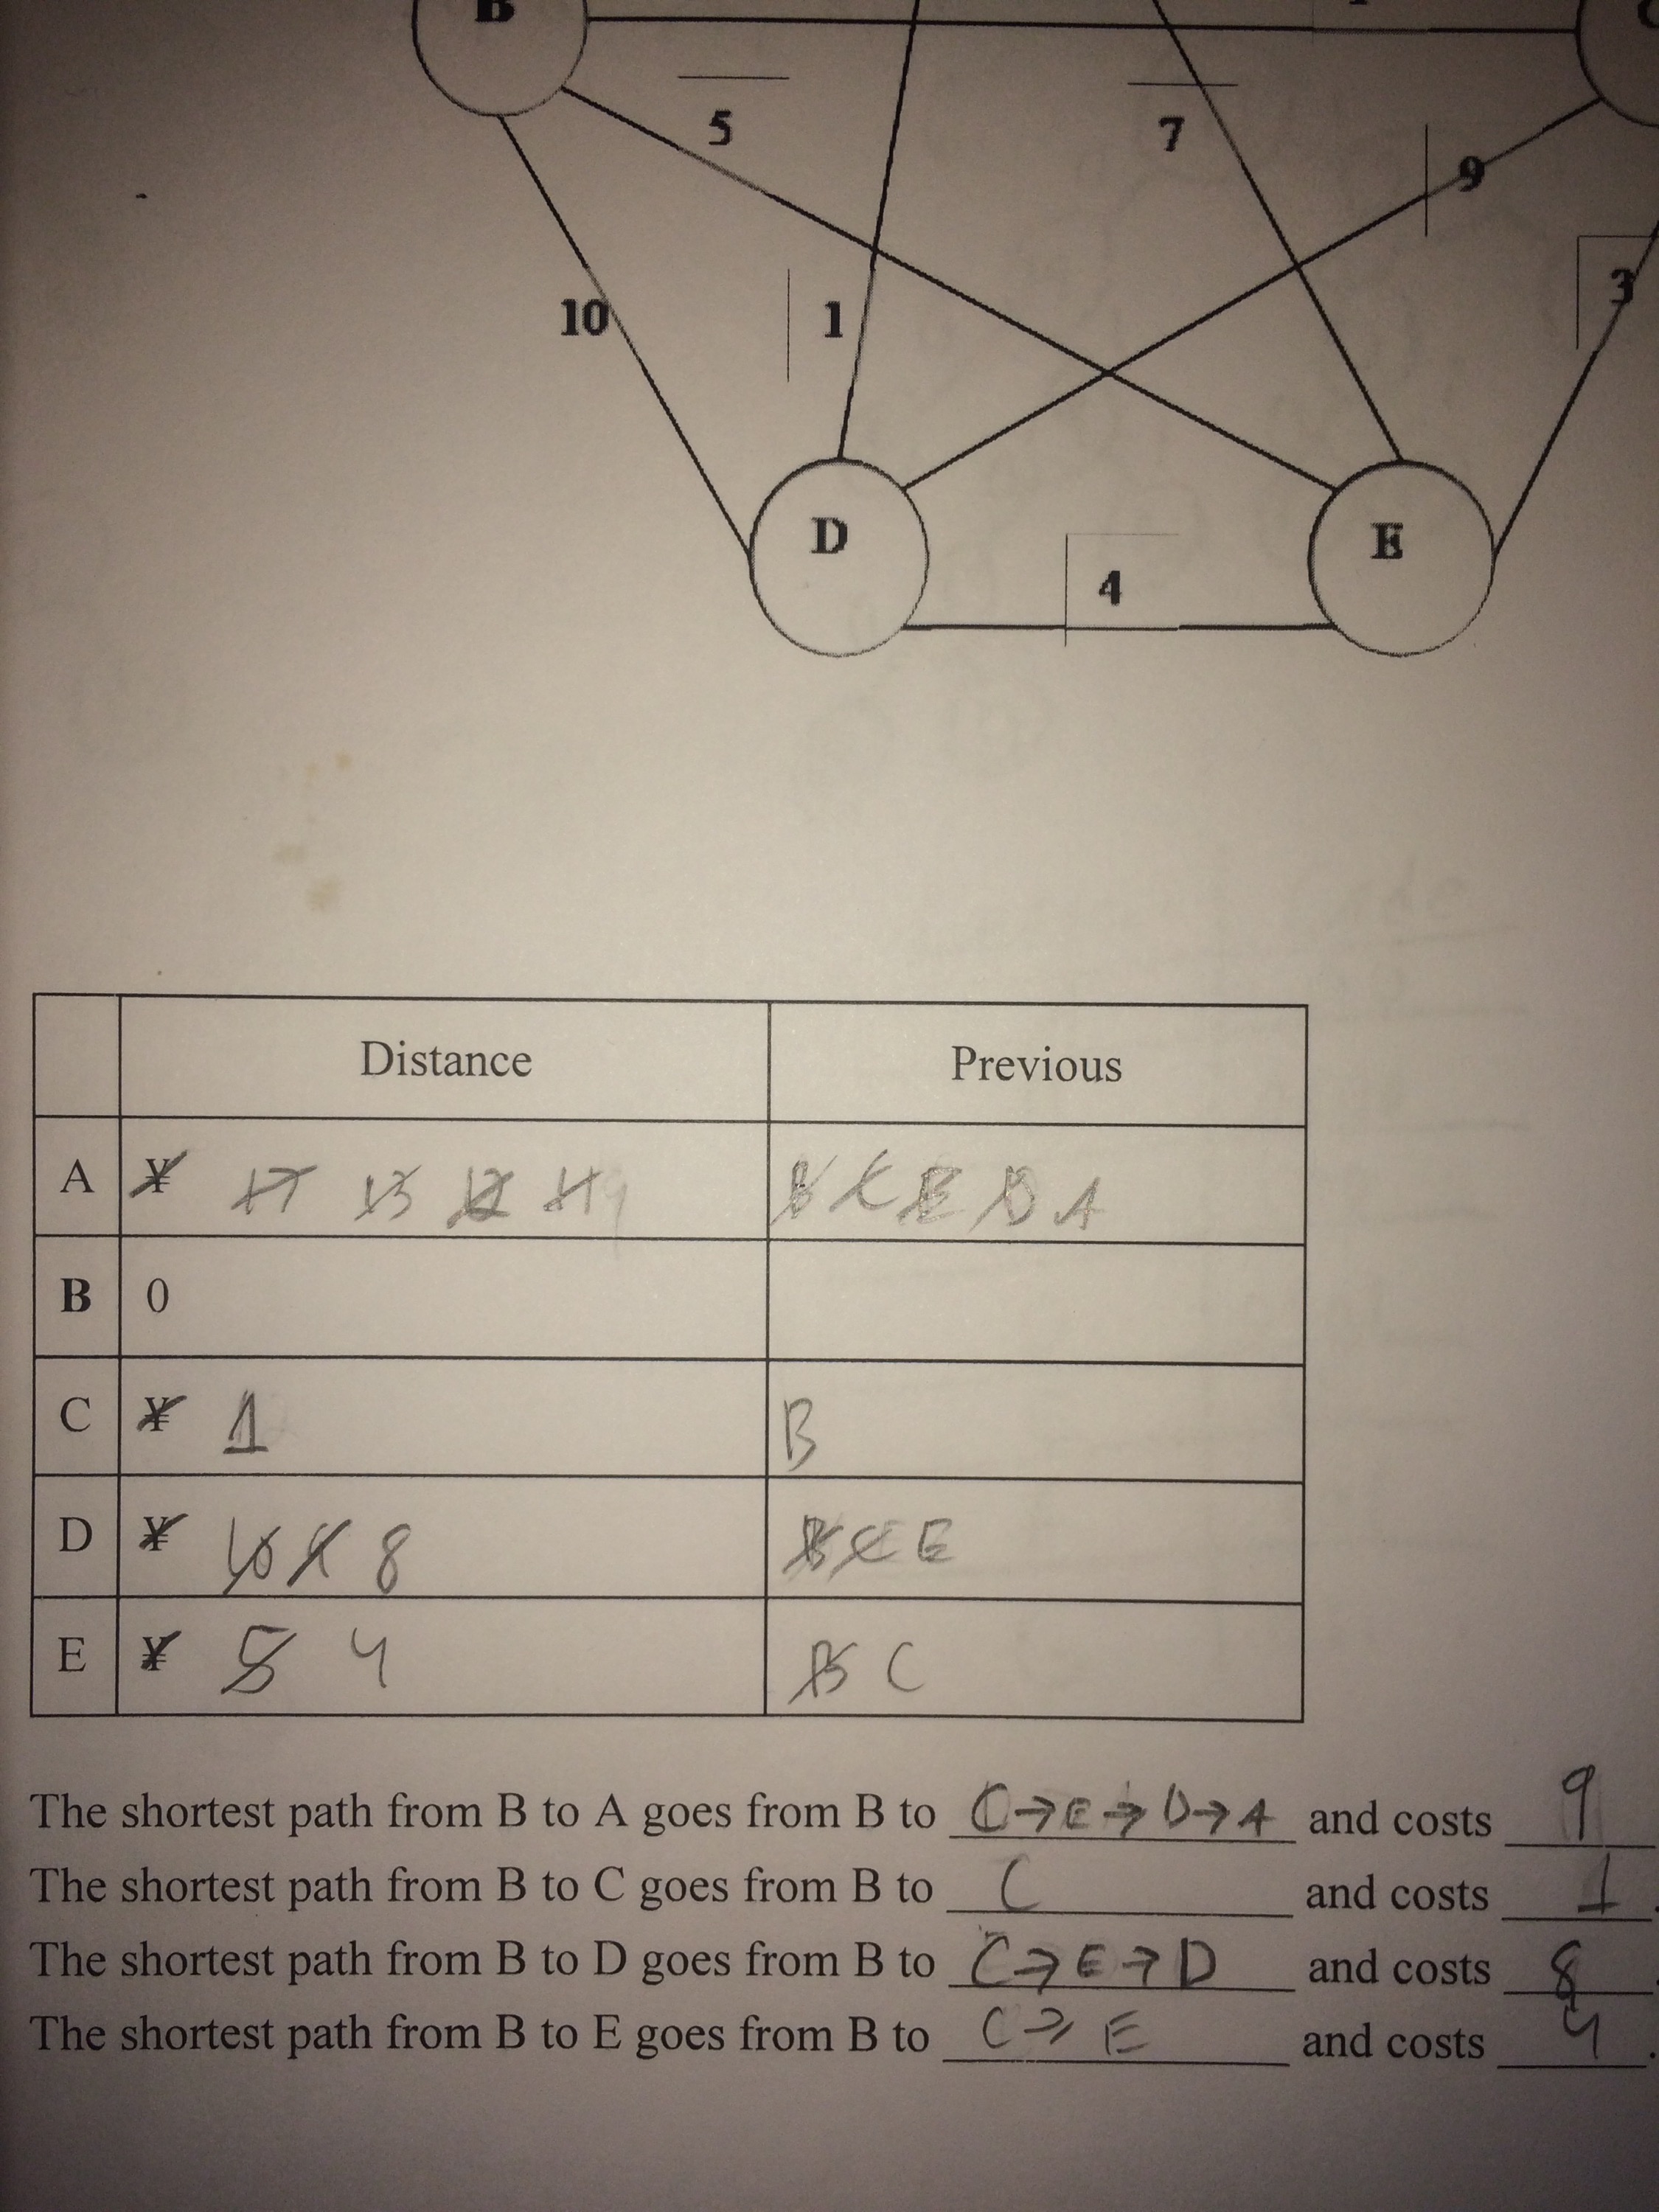 B
5
7
9
10
1
3
D
E
4
Distance Previous
A ¥ 17 13 12 11 9 B C E D A
B 0
C ¥ 1 B
D ¥ 10 8 B C E
E ¥ 5 4 B C
The shortest path from B to A goes from B to C→E→D→A and costs 9
The shortest path from B to C goes from B to C and costs 1.
The shortest path from B to D goes from B to C→E→D and costs 8.
The shortest path from B to E goes from B to C→E and costs 4.